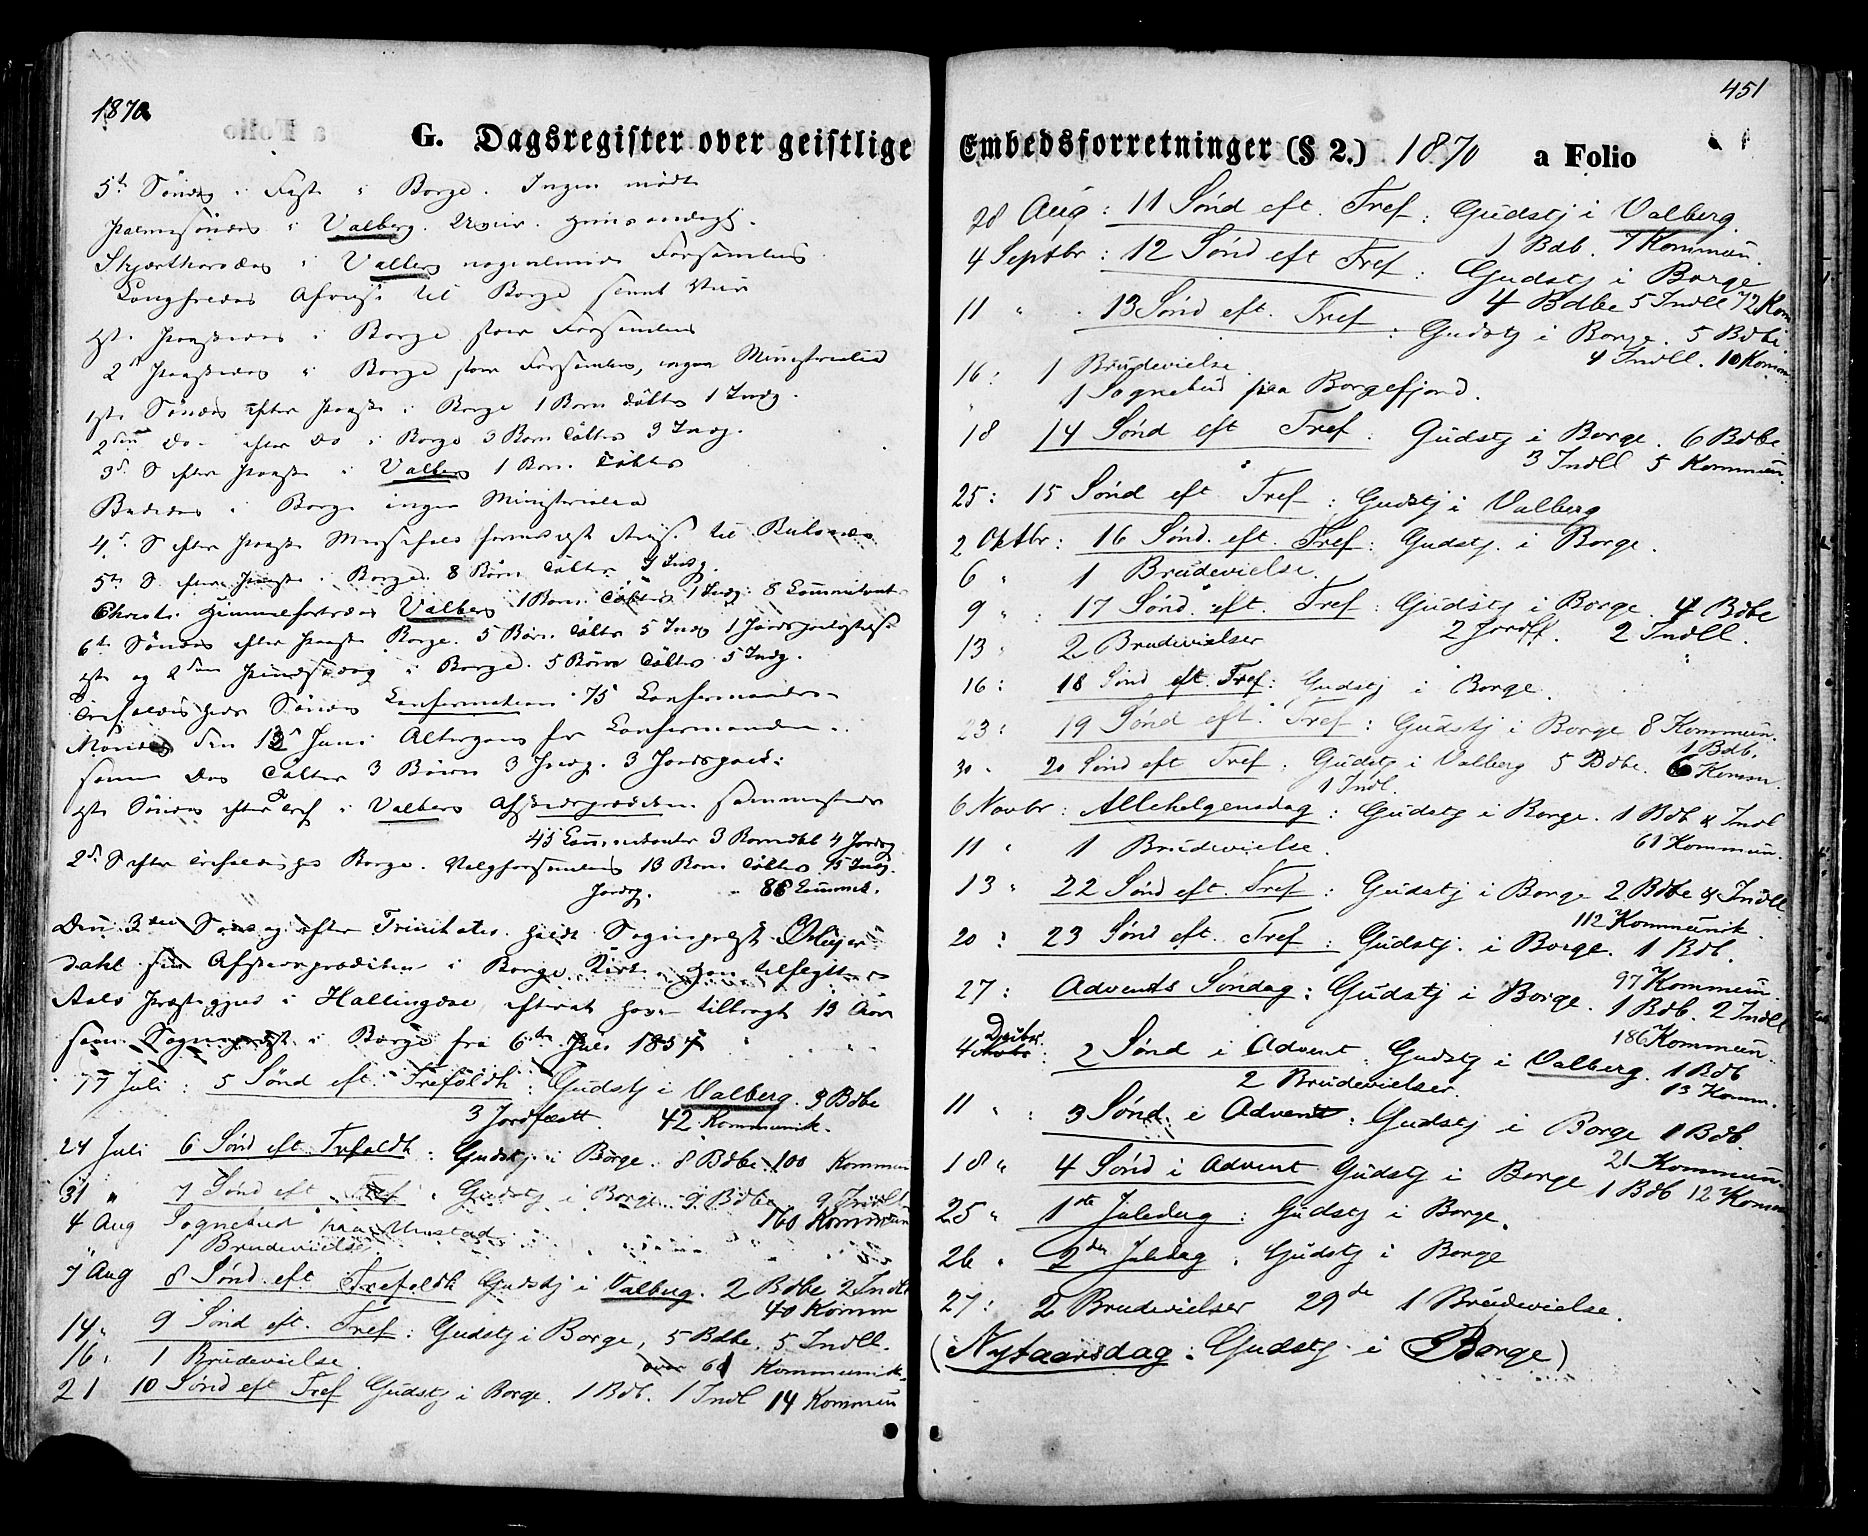 1870
G. Dagsregister over geistlige
5te Søndag i Faste i Borge. Ingen mødt
Palmesøndag i Valberg.
Skjærthorsdag i Valberg Forsamling
Langfredag til Borge
1ste Paaskedag i Borge stor Forsamling
2den Paaskedag i Borge stor Forsamling, ingen Ministerialia
1ste Søndag efter Paaske i Borge 1 Barn døbtes 1 Indg.
2den Do efter Do i Borge 3 Børn døbtes 3 Indg.
3die S efter Paaske i Valberg 1 Barn døbtes
Bededag i Borge ingen Ministerialia
4de S efter Paaske til
5te S. efter Paaske i Borge. 8 Børn døbtes
Christi Himmelfartsdag Valberg 1 Barn døbtes 1 Indg. 8 Communikanter
6te Søndag efter Paaske Borge. 5 Børn døbtes 5 Indg 1
1ste og 2den Pindsedag i Borge. 5 Børn døbtes 5 Indg.
Trefoldigheds Søndag Confirmation 75 Confirmander
Mandag den 13de Juni Altergang for Confirmanden
samme Dag døbtes 3 Børn 3 Indg. 3 Jordspaak:
1ste Søndag efter Tref i Valberg Afskedsprædiken sammesteds
45 Communikanter 3 Barnedåb 4 Jordsp
2den S efter Trefoldigheds Borge. 13 Børn døbtes 15 Indg.
Jordsp. 88 Commt.
Den 3die Søndag efter Trinitatis holdt Sogneprest
dahl sin Afskedsprædiken i Borge Kirke
Aals Præstegjeld i Hallingdal, efterat have tilbragt 13 Aar
som Sogneprest i Borge fra 6te Juli 1857
17 Juli: 5 Sønd eft. Trefoldh: Gudstj i Valberg. 3 Bdbe
3 Jordfæstt. 42 Kommunik.
24 Juli 6 Sønd eft. Trefoldh: Gudstj. i Borge. 8 Bdbe 100 Kommun
31 " 7 Sønd eft Tref. Gudstj i Borge. 9 Bdbe 9 Indl
160 Kommun
4 Aug Sognebud paa Mustad
1 Brudevielse
7 Aug 8 Sønd. eft. Trefoldh Gudstj i Valberg. 2 Bdbe 2 Indl
40 Komm
14 " 9 Sønd eft. Tref: Gudstj i Borge, 5 Bdbe. 5 Indll.
16: 1 Brudevielse. over 60 Kommunik.
21 10 Sønd eft Tref Gudstj i Borge. 1 Bdb. 1 Indl 14 Kommun
451
Embedsforretninger (§ 2.) 1870 a Folio
28 Aug: 11 Sønd eft. Tref: Gudstj i Valberg.
1 Bdb. 7 Kommun.
4 Septbr: 12 Sønd eft Tref: Gudstj i Borge
4 Bdbe 5 Indll 72 Kom
11 " 13 Sønd eft. Tref: Gudstj i Borge. 5 Bdbe
4 Indll. 10 Komm.
16: 1 Brudevielse.
" 1 Sognebud paa Borgefjord.
18 14 Sønd eft Tref: Gudstj i Borge. 6 Bdbe
3 Indll 5 Kommun.
25: 15 Sønd eft Tref: Gudstj i Valberg
2 Oktbr: 16 Sønd. eft. Tref: Gudstj. i Borge.
6 " 1 Brudevielse.
9 " 17 Sønd. eft. Tref: Gudstj i Borge. 4 Bdbe
2 Jordf. 2 Indll.
13 " 2 Brudevielser
16: 18 Sønd eft. Tref: Gudstj i Borge.
23: 19 Sønd eft. Tref: Gudstj i Borge 8 Kommun.
1 Bdb.
30 " 20 Sønd eft Tref: Gudstj i Valberg 5 Bdbe. 6 Kommun.
1 Indl.
6 Novbr: Allehelgensdag: Gudstj i Borge. 1 Bdb & Indl
61 Kommun.
11 " 1 Brudevielse.
13 " 22 Sønd eft. Tref: Gudstj i Borge 2 Bdbe & Indll
112 Kommunik.
20: 23 Sønd eft. Tref: Gudstj. i Borge. 1 Bdb.
97 Kommun.
27: Advents Søndag: Gudstj i Borge. 1 Bdb. 2 Indll
186 Kommun.
4 Decbr: 2 Sønd i Advent: Gudstj i Valberg. 1 Bdb
2 Brudevielser. 13 Komm.
11 " : 3 Sønd. i Advent: Gudstj i Borge 1 Bdb.
21 Kommun.
18 " 4 Sønd i Advent Gudstj i Borge 1 Bdb 12 Komm
25 " 1ste Juledag: Gudstj i Borge.
26 " 2den Juledag. Gudstj i Borge
27: 2 Brudevielser 29de 1 Brudevielse.
(Nytaarsdag: Gudstj. i Borge)